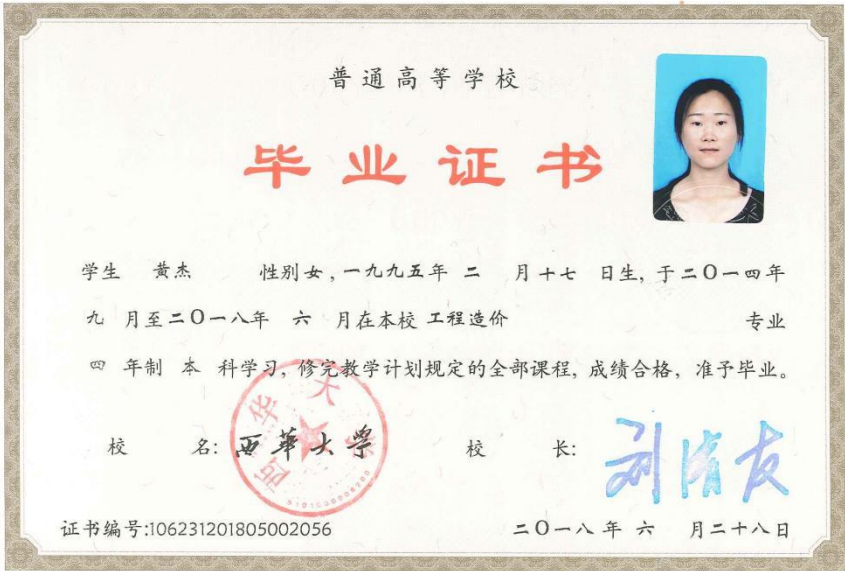 普通高等学校
毕业证书
学生 黄杰 性别女,一九九五年 二 月十七 日生,于二〇一四年
九 月至二〇一八年 六 月在本校 工程造价 专业
四 年制 本 科学习,修完教学计划规定的全部课程,成绩合格,准予毕业。
校 名:西華大學 校 长:刘清友
西华大学
证书编号:106231201805002056 二〇一八年 六 月二十八日